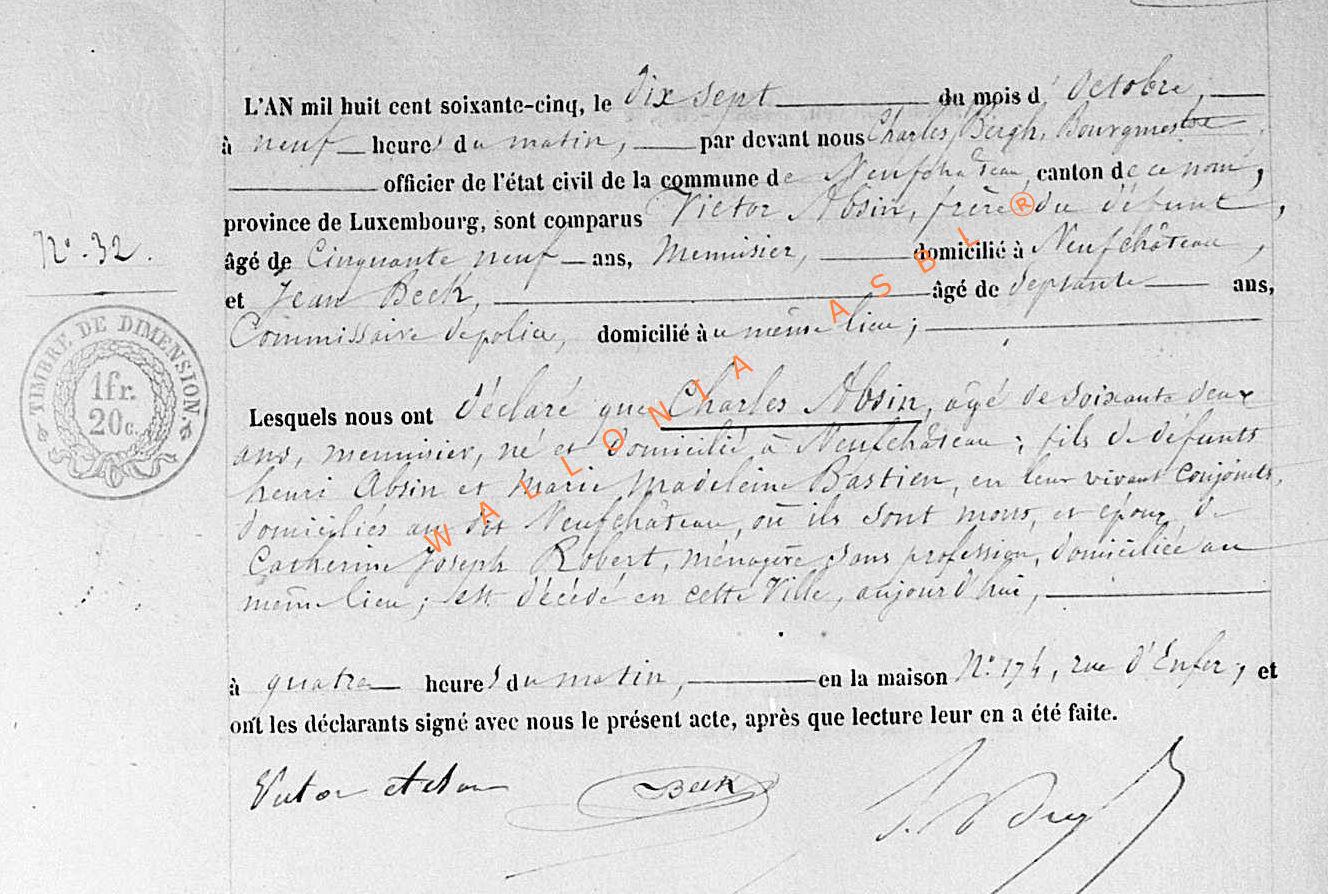 L'AN mil huit cent soixante-cinq, le dix sept du mois d'Octobre,
à neuf heures du matin, par devant nous Charles Bergh, Bourgmestre
officier de l'état civil de la commune de Neufchateau, canton de ce nom,
province de Luxembourg, sont comparus Victor Absin, frère du défunt,
N° 32.
âgé de Cinquante neuf ans, Menuisier, domicilié à Neufchâteau,
et Jean Beck, âgé de Septante ans,
Commissaire de police, domicilié au même lieu;
TIMBRE DE DIMENSION
1fr.
20c.
Lesquels nous ont déclaré que Charles Absin, âgé de soixante deux
ans, menuisier, né et domicilié à Neufchâteau; fils de défunts
henri Absin et Marie Madeleine Bastien, en leur vivant conjoints,
domiciliés au dit Neufchâteau, où ils sont morts, et époux de
Catherine Joseph Robert, ménagère sans profession, domiciliée au
même lieu; est décédé en cette Ville, aujourd'hui,
à quatre heures du matin, en la maison N° 174, rue d'Enfer, et
ont les déclarants signé avec nous le présent acte, après que lecture leur en a été faite.
Victor Beck
WALLONIA ASBL ®